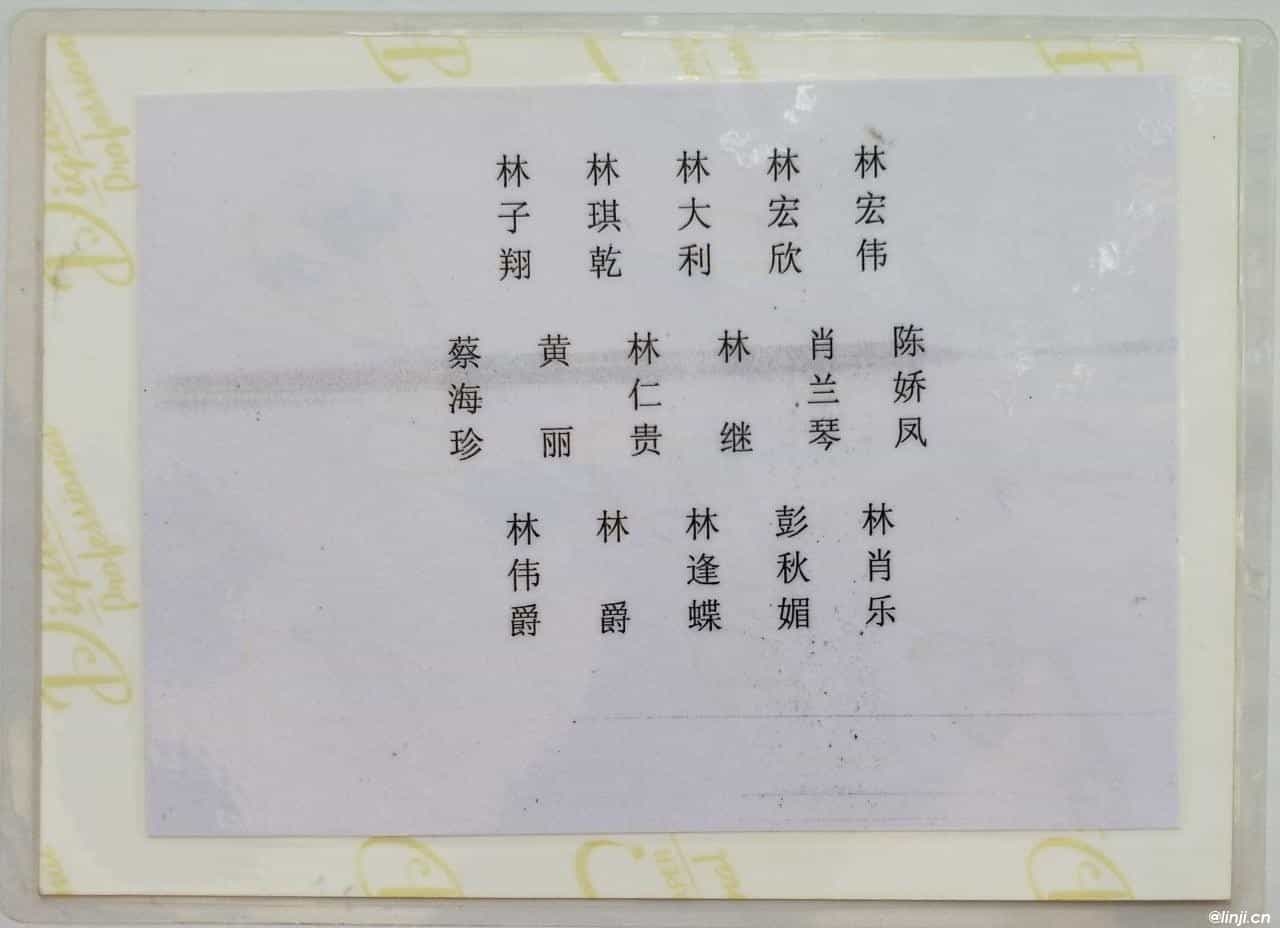 林子翔 林琪乾 林大利 林宏欣 林宏伟
蔡海珍 黄丽 林仁贵 林继 肖兰琴 陈娇凤
林伟爵 林爵 林逢蝶 彭秋媚 林肖乐
@linji.cn